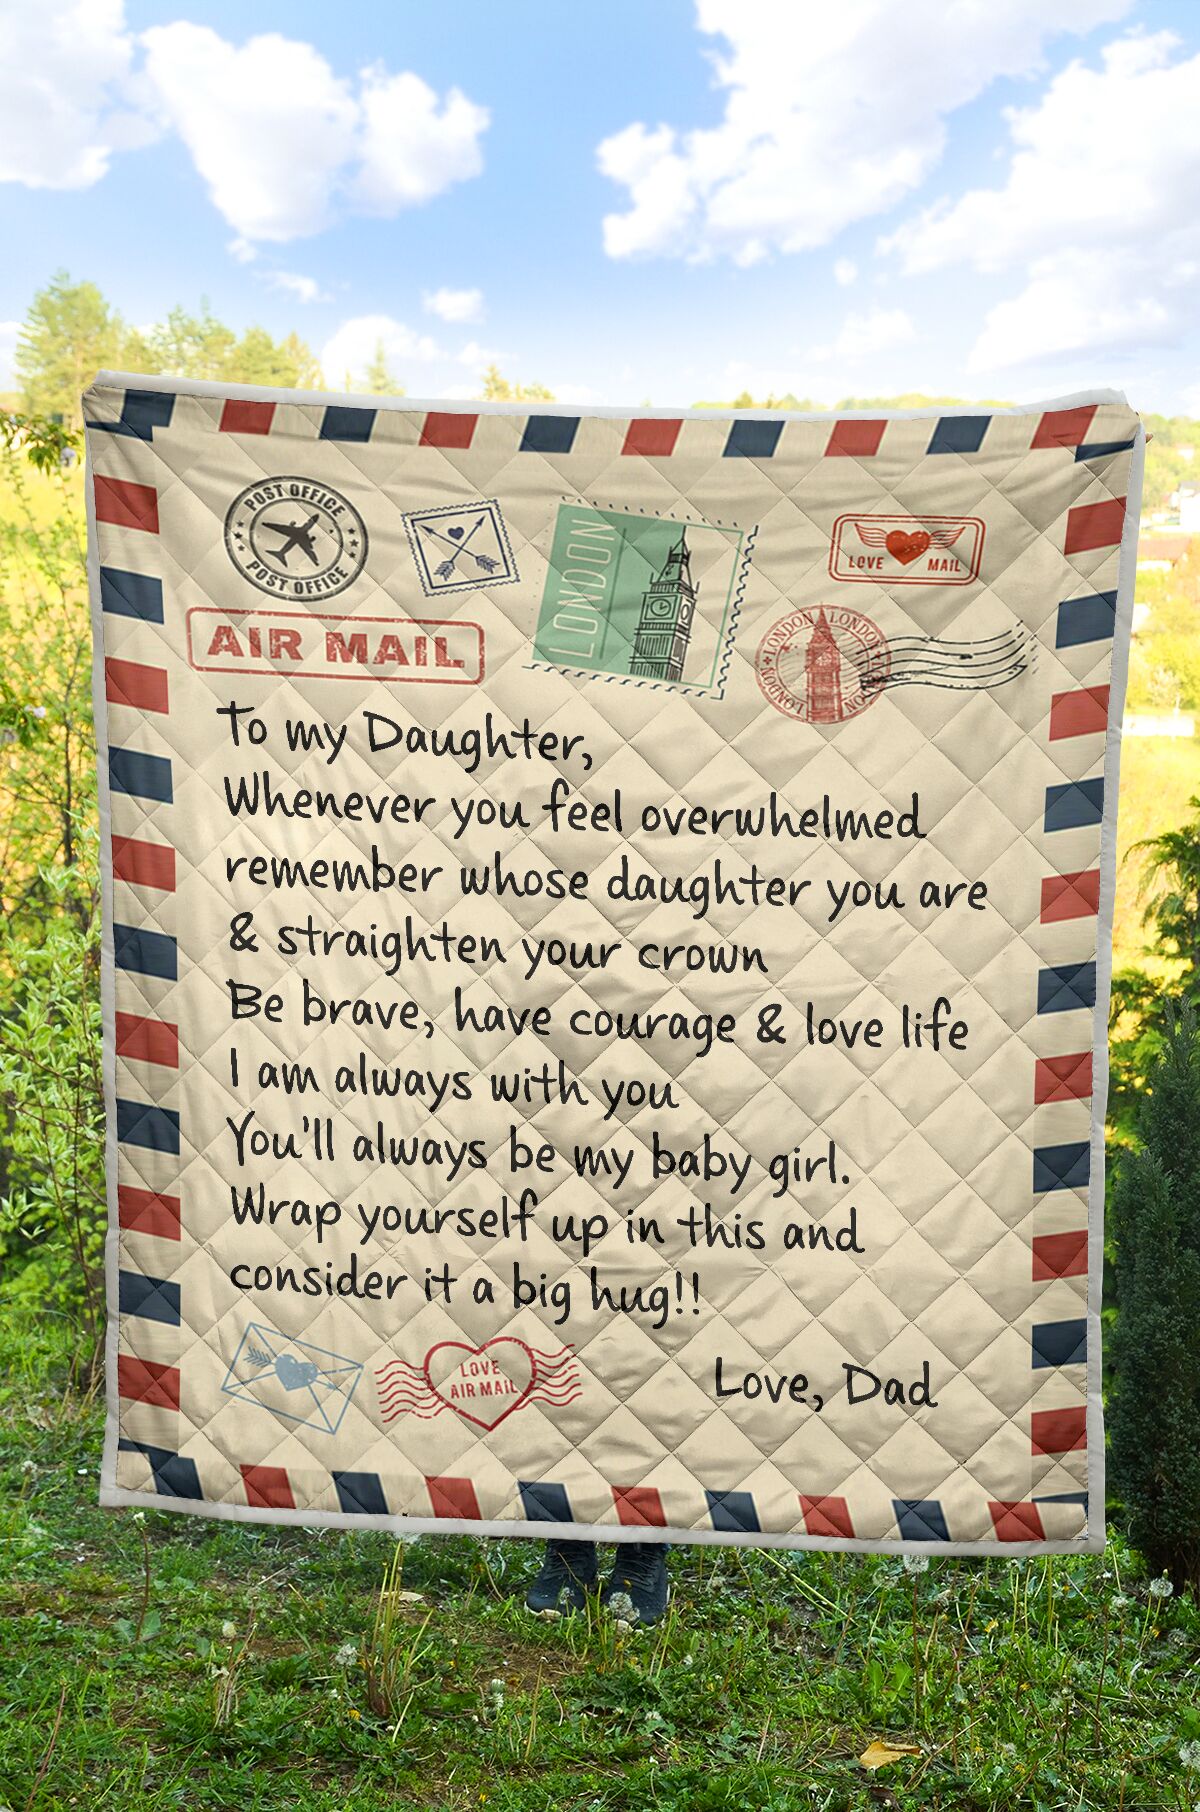 POST OFFICE
POST OFFICE
LONDON
LOVE MAIL
AIR MAIL
LONDON LONDON
LONDON LONDON
To my Daughter,
Whenever you feel overwhelmed
remember whose daughter you are
& straighten your crown
Be brave, have courage & love life
I am always with you
You'll always be my baby girl.
Wrap yourself up in this and
consider it a big hug!!
LOVE
AIR MAIL
Love, Dad